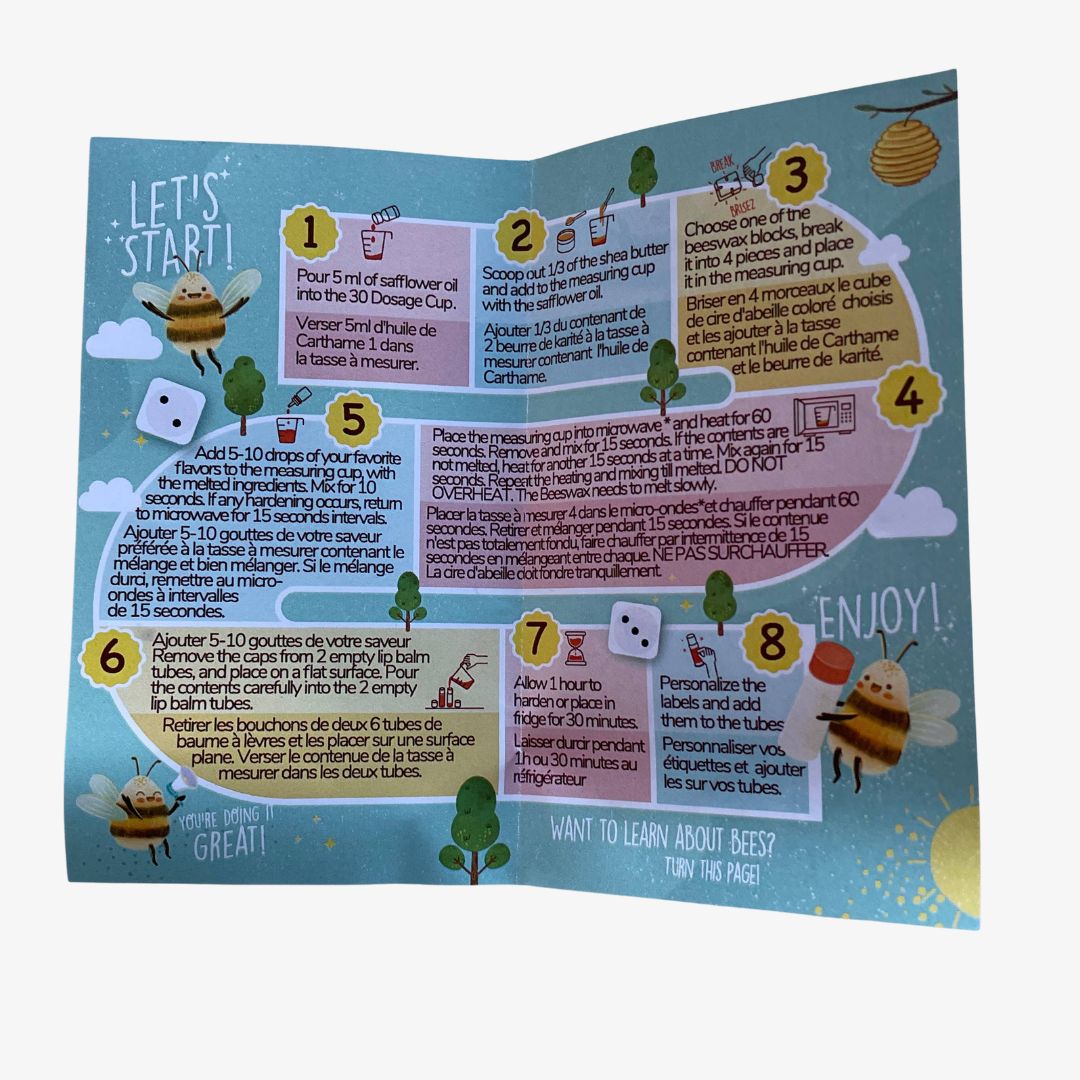 LET'S
START!
1
Pour 5 ml of safflower oil
into the 30 Dosage Cup.
Verser 5ml d'huile de
Carthame 1 dans
la tasse à mesurer.
2
Scoop out 1/3 of the shea butter
and add to the measuring cup
with the safflower oil.
Ajouter 1/3 du contenant de
2 beurre de karité à la tasse à
mesurer contenant l'huile de
Carthame.
BREAK
BRISEZ
3
Choose one of the
beeswax blocks, break
it into 4 pieces and place
it in the measuring cup.
Briser en 4 morceaux le cube
de cire d'abeille coloré choisis
et les ajouter à la tasse
contenant l'huile de Carthame
et le beurre de karité.
4
Place the measuring cup into microwave * and heat for 60
seconds. Remove and mix for 15 seconds. If the contents are
not melted, heat for another 15 seconds at a time. Mix again for 15
seconds. Repeat the heating and mixing till melted. DO NOT
OVERHEAT. The Beeswax needs to melt slowly.
Placer la tasse à mesurer 4 dans le micro-ondes*et chauffer pendant 60
secondes. Retirer et mélanger pendant 15 secondes. Si le contenue
n'est pas totalement fondu, faire chauffer par intermittence de 15
secondes en mélangeant entre chaque. NE PAS SURCHAUFFER.
La cire d'abeille doit fondre tranquillement.
5
Add 5-10 drops of your favorite
flavors to the measuring cup, with
the melted ingredients. Mix for 10
seconds. If any hardening occurs, return
to microwave for 15 seconds intervals.
Ajouter 5-10 gouttes de votre saveur
préférée à la tasse à mesurer contenant le
mélange et bien mélanger. Si le mélange
durci, remettre au micro-
ondes à intervalles
de 15 secondes.
6
Ajouter 5-10 gouttes de votre saveur
Remove the caps from 2 empty lip balm
tubes, and place on a flat surface. Pour
the contents carefully into the 2 empty
lip balm tubes.
Retirer les bouchons de deux 6 tubes de
baume à lèvres et les placer sur une surface
plane. Verser le contenue de la tasse à
mesurer dans les deux tubes.
7
Allow 1 hour to
harden or place in
fridge for 30 minutes.
Laisser durcir pendant
1h ou 30 minutes au
réfrigérateur
8
Personalize the
labels and add
them to the tubes
Personnaliser vos
étiquettes et ajouter
les sur vos tubes.
ENJOY!
YOU'RE DOING IT
GREAT!
WANT TO LEARN ABOUT BEES?
TURN THIS PAGE!